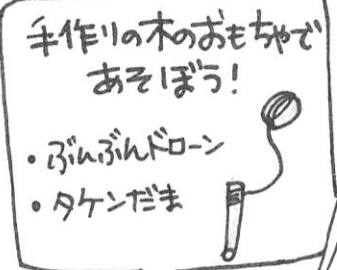 手作りの木のおもちゃで
あそぼう！
・ぶんぶんドローン
・タケンだま